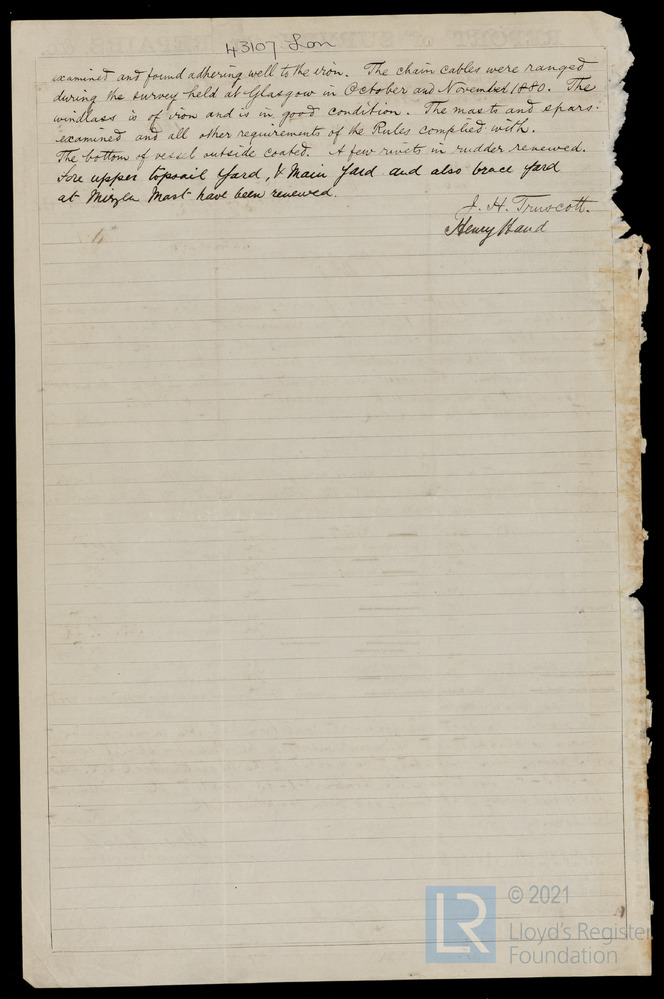 43107 Lon
examined and found adhering well to the iron. The chain cables were ranged
during the survey held at Glasgow in October and November 1880. The
windlass is of iron and is in good condition. The masts and spars
examined and all other requirements of the Rules complied with.
The bottom of vessel outside coated. A few rivets in rudder renewed.
Fore upper topsail yard, & Main yard and also brace yard
at Mizzen Mast have been renewed.
J. H. Truscott.
Henry Hand
LR
© 2021
Lloyd's Register
Foundation